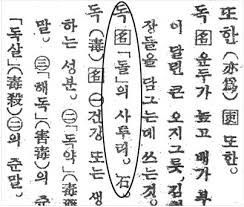 또한(亦爲) 또한
독 名 운두가 높고 배가 부
이 달린 큰 오지그릇, 김
장들을 담그는데 쓰는것.
독 名 「돌」의 사투리. 石
독(毒) 名 ㊀건강 또는 생
하는 성분. ㊁「독약」(毒
말. ㊂「해독」(害毒)의 준
「독살」(毒殺)㊁의 준말.